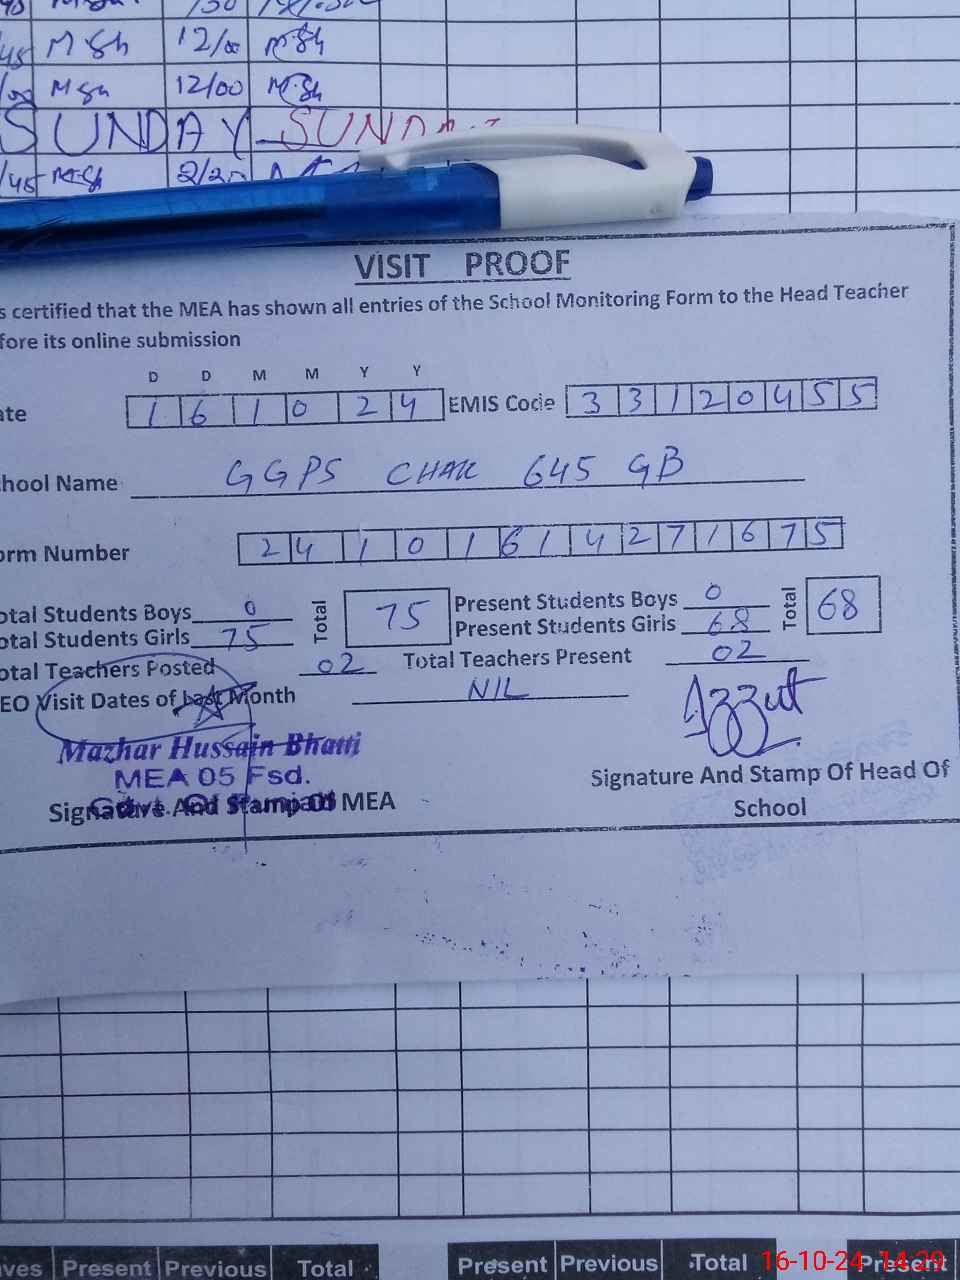 M Sh 12/00 M.Sh
M Sh 12/00 M.Sh
SUNDAY SUNDA
/45 M.Sh 2/20
VISIT PROOF
s certified that the MEA has shown all entries of the School Monitoring Form to the Head Teacher
fore its online submission
D D M M Y Y
ate 1 6 1 0 2 4 EMIS Code 3 3 1 2 0 4 5 5
hool Name GGPS CHAK 645 GB
orm Number 2 4 1 0 1 6 1 4 2 7 1 6 7 5
otal Students Boys 0 Total 75 Present Students Boys 0 Total 68
otal Students Girls 75 Present Students Girls 68
otal Teachers Posted 02 Total Teachers Present 02
EO Visit Dates of Last Month NIL
Mazhar Hussain Bhatti
MEA 05 Fsd.
Signature And Stamp Of MEA
Signature And Stamp Of Head Of
School
ves Present Previous Total Present Previous Total Present
16-10-24 14:29